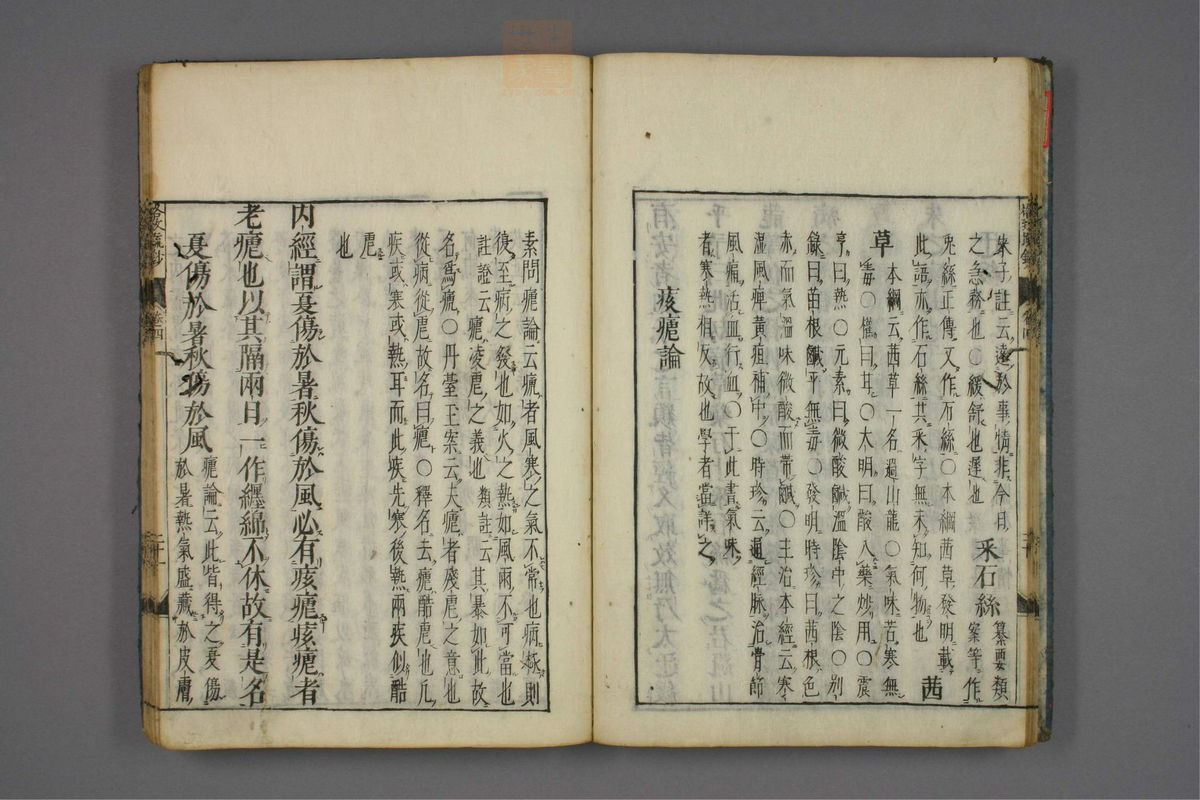 朱子註云遠於事情非今日
之急務也○緩舒也遲也 釆石絲 纂要類案等作
兎絲正傳又作石絲○本綱茜草發明載
此語亦作石絲其釆字無未知何物也 茜
草 本綱云茜草一名過山龍○氣味苦寒無
毒○權曰甘○大明曰酸入藥炒用○震
亨曰熱○元素曰微酸鹹溫陰中之陰○別
錄曰苗根鹹平無毒○發明時珍曰茜根色
赤而氣溫味微酸而帶鹹○主治本經云寒
濕風痺黃疸補中○時珍云通經脉治骨節
風痛活血行血○于此書氣味
者寒熱相反故也學者當詳之
痎瘧論
素問瘧論云瘧者風寒之氣不常也病極則
復至病之發也如火之熱如風雨不可當也
註證云瘧凌虐之義也 類註云其暴如此故
名爲瘧○丹臺玉案云夫瘧者殘虐之意也
從病從虐故名曰瘧○釋名云瘧酷虐也凡
疾或寒或熱耳而此疾先寒後熱兩疾似酷
虐
也
內經謂夏傷於暑秋傷於風必有痎瘧痎瘧者
老瘧也以其隔兩日一作纏綿不休故有是名
夏傷於暑秋傷於風 瘧論云此皆得之夏傷
於暑熱氣盛藏於皮膚
卷四
二十一